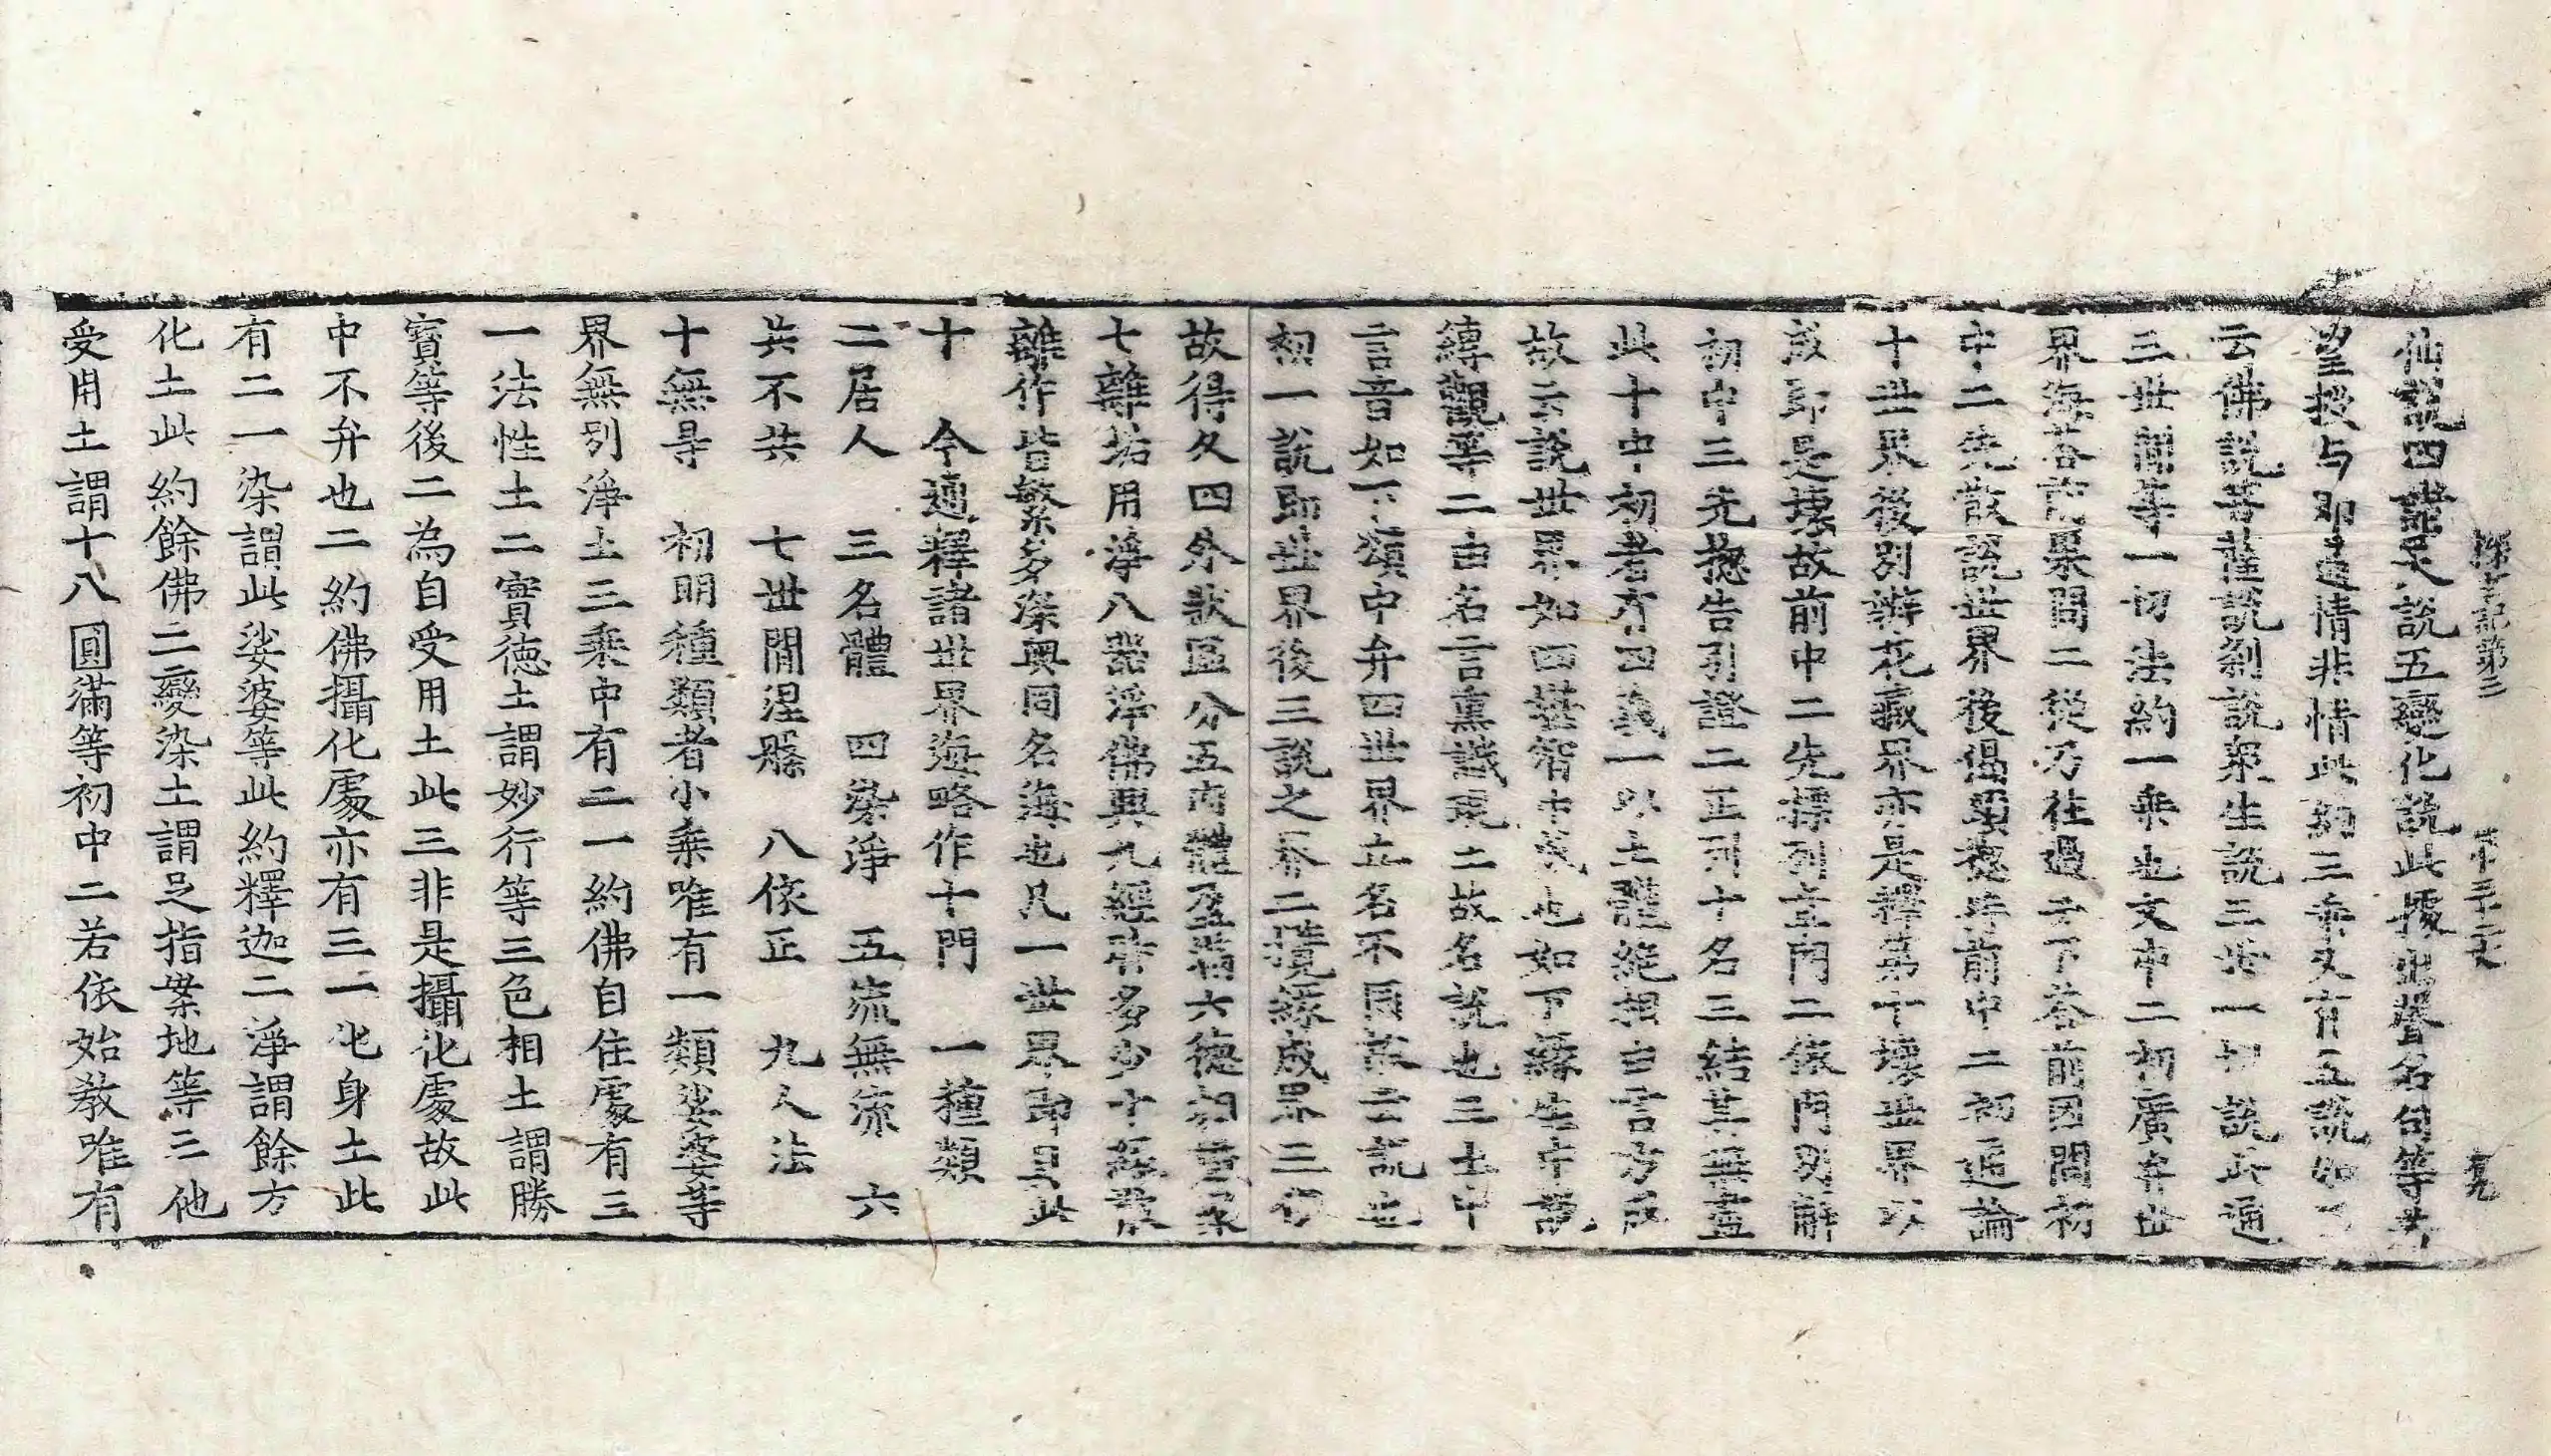 探玄記第三 第三十二丈 覚九
仙說四諸天說五變化說此據出聲名句等若
望授与即通情非情此約三乘又有五說如下
云佛說菩薩說刹說衆生說三世一切說此通
三世間等一切法約一乘也文中二初廣弁世
界海答前果問二從乃往過去下答前因問初
中二先散說世界後偈頌揔等前中二初通論
十世界後別辨花藏界亦是釋第十壞世界以
成即是壞故前中二先標列章門二依門別解
初中三先揔告引證二正列十名三結其無盡
此十中初者有四義一以土體絶相由言方成
故云說世界如四無㝵智中義也如下緣生中說
縛觀等二由名言熏識現土故名說也三土中
言音如下頌中弁四世界立名不同故云說也
初一說即世界後三說之界二攬緣成界三仰
故得久四外狀區分五內體盈滿六德相重疊
七離垢用淨八器淨佛興九經時多少十經散
離作皆繁多深奧同名海也凡一世界即具此
十　今通釋諸世界海略作十門　一種類
二居人　三名體　四染淨　五㳅無㳅　六
共不共　七世間涅槃　八依正　九人法
十無㝵　初明種類者小乘唯有一類娑婆等
界無別淨土三乘中有二一約佛自住處有三
一法性土二實德土謂妙行等三色相土謂勝
寶等後二為自受用土此三非是攝化處故此
中不弁也二約佛攝化處亦有三一化身土此
有二一染謂此娑婆等此約釋迦二淨謂餘方
化土此約餘佛二變染土謂足指桉地等三他
受用土謂十八圓滿等初中二若依始教唯有